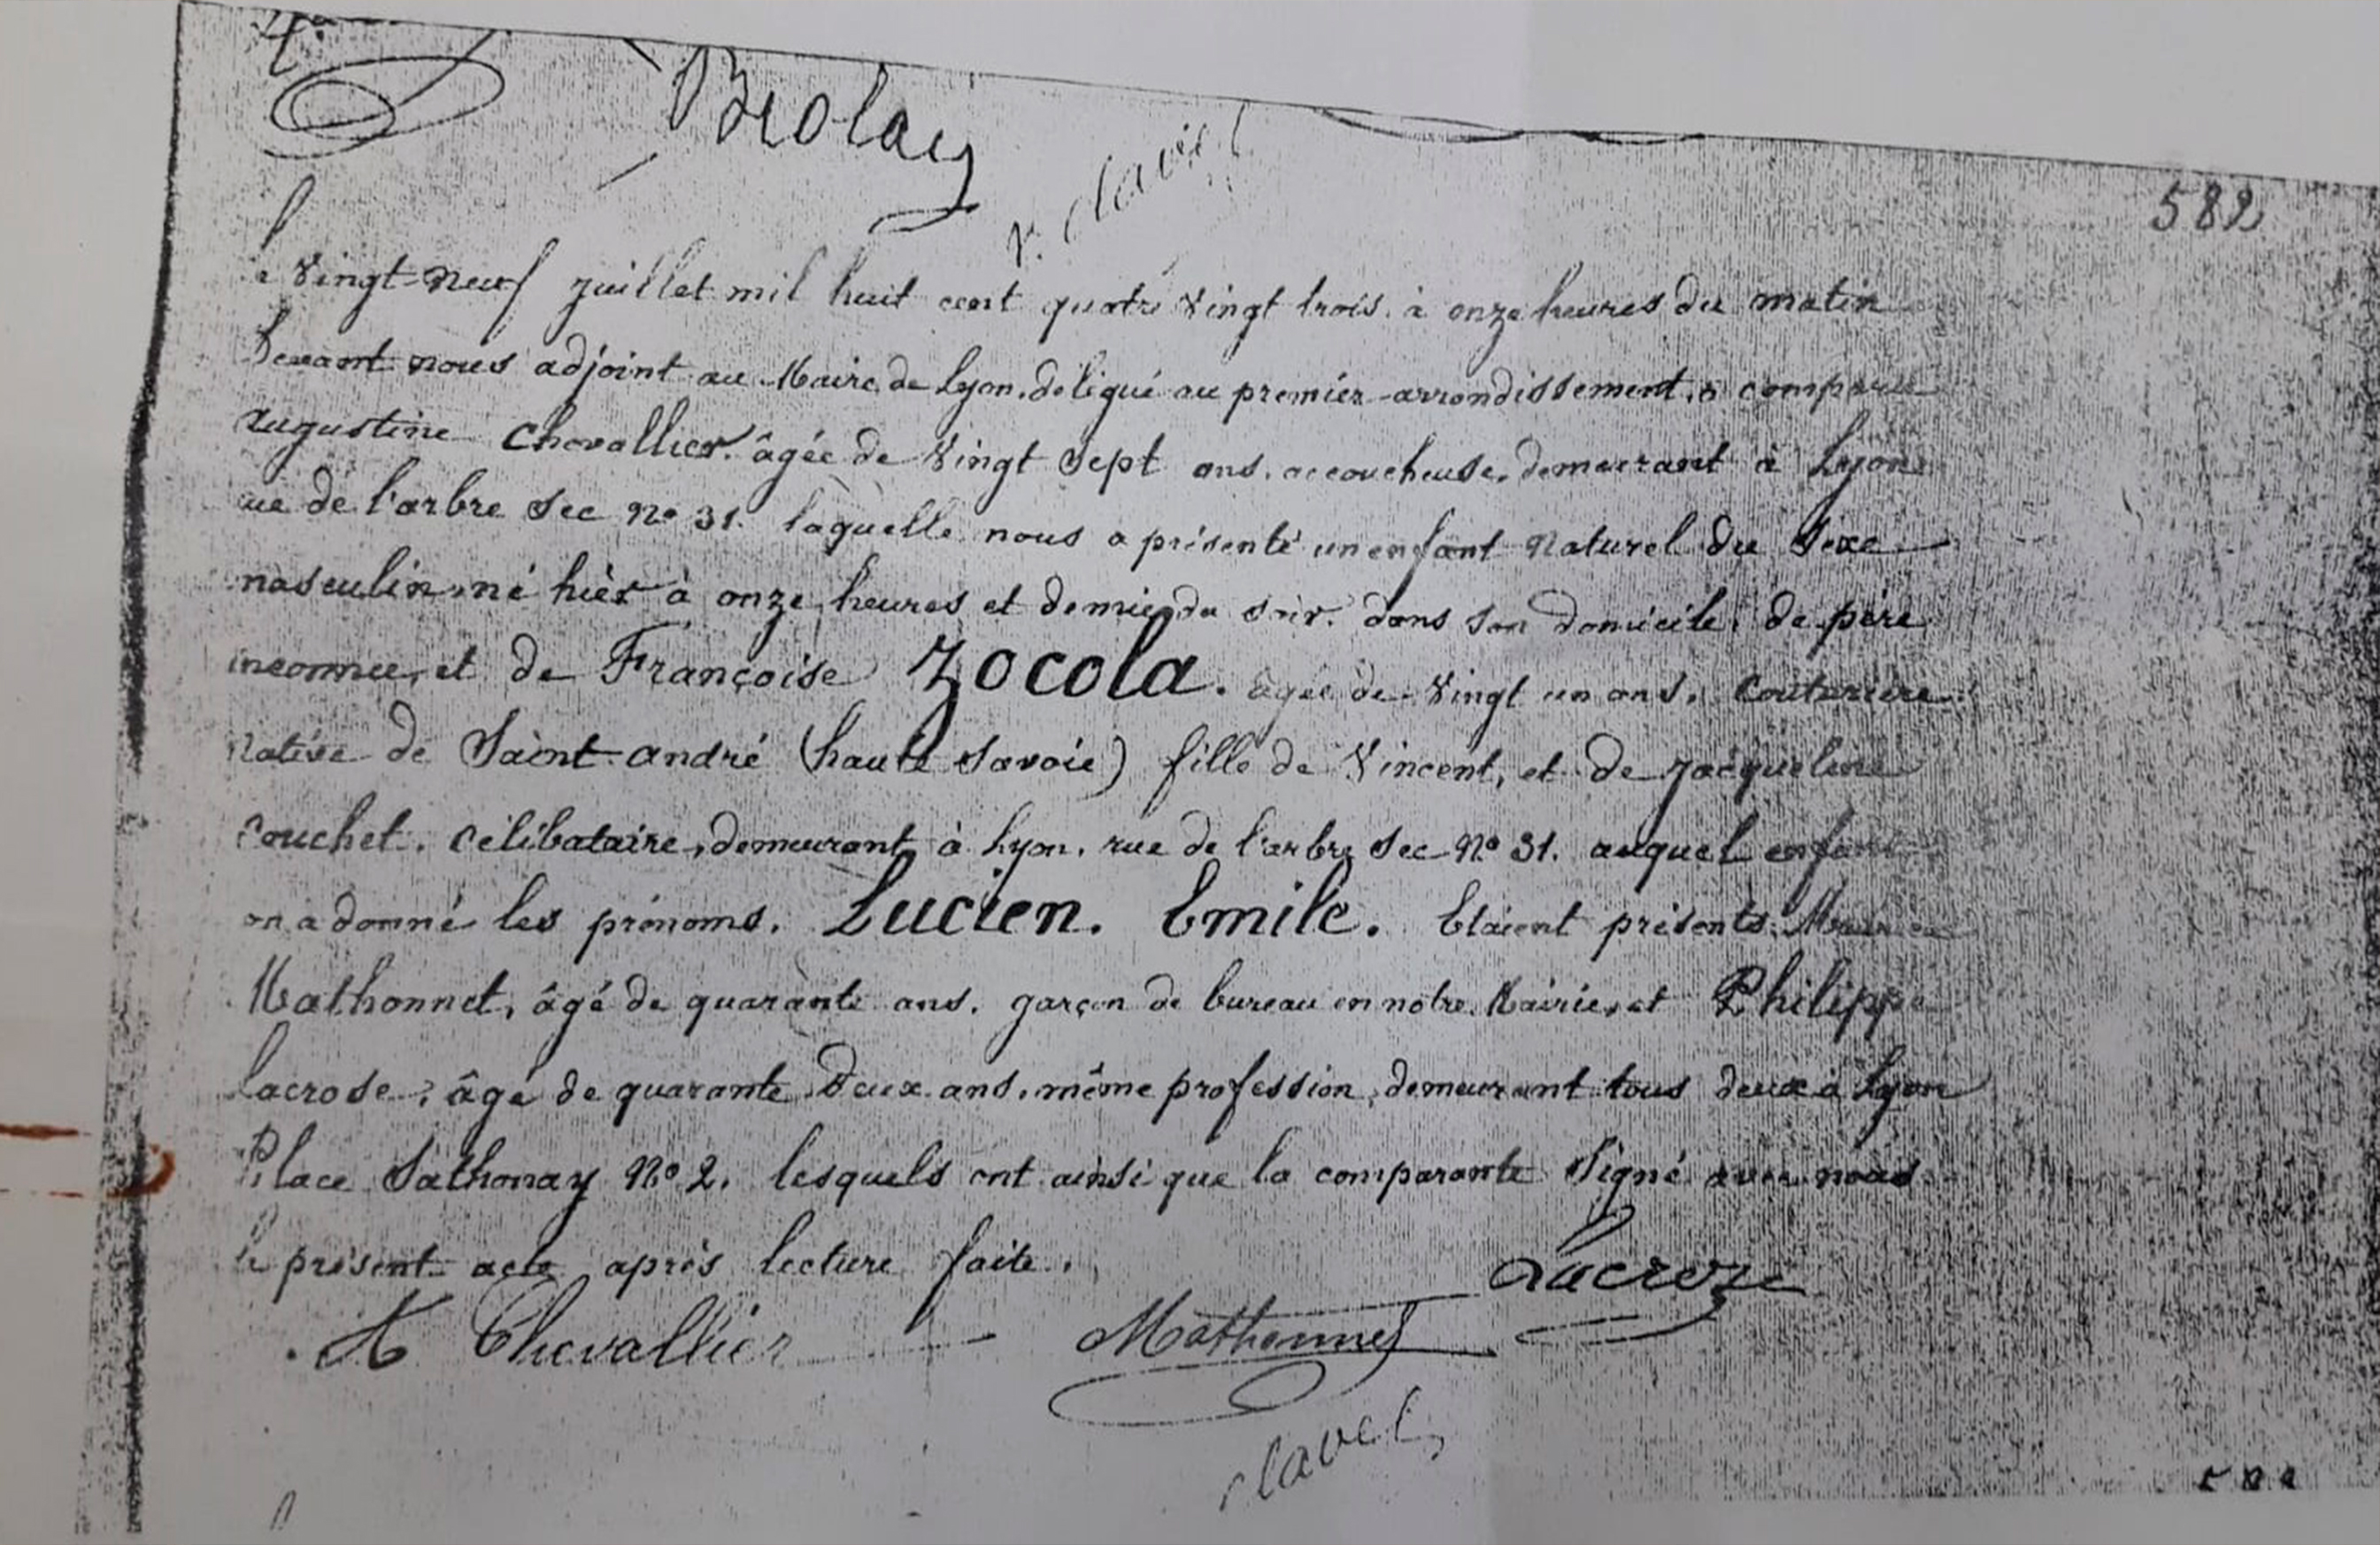 Brolay
582
Le Vingt-neuf juillet mil huit cent quatre vingt trois. à onze heures du matin
Devant nous adjoint au Maire de Lyon. délégué au premier arrondissement, a comparu
Augustine Chevallier. âgée de Vingt Sept ans. accoucheuse. demeurant à Lyon
rue de l'arbre Sec No 31. laquelle nous a présenté un enfant naturel du Sexe
masculin. né hier à onze heures et demie du soir. dans son domicile, de père
inconnu, et de Françoise Zocola. âgée de Vingt un ans. Couturière
Native de Saint-André (haute Savoie) fille de Vincent, et de Jacqueline
Couchet. Célibataire, demeurant à Lyon. rue de l'arbre Sec No 31. auquel enfant
on a donné les prénoms. Lucien. Emile. Etaient présents.
Mathonnet, âgé de quarante ans. garçon de bureau en notre Mairie, et Philippe
Lacrose, âgé de quarante Deux ans. même profession, demeurant tous deux à Lyon
Place Sathonay No 2. lesquels ont ainsi que la comparante Signé avec nous
le présent acte après lecture faite.
Lacroze
A Chevallier
Mathonnet
Clavel